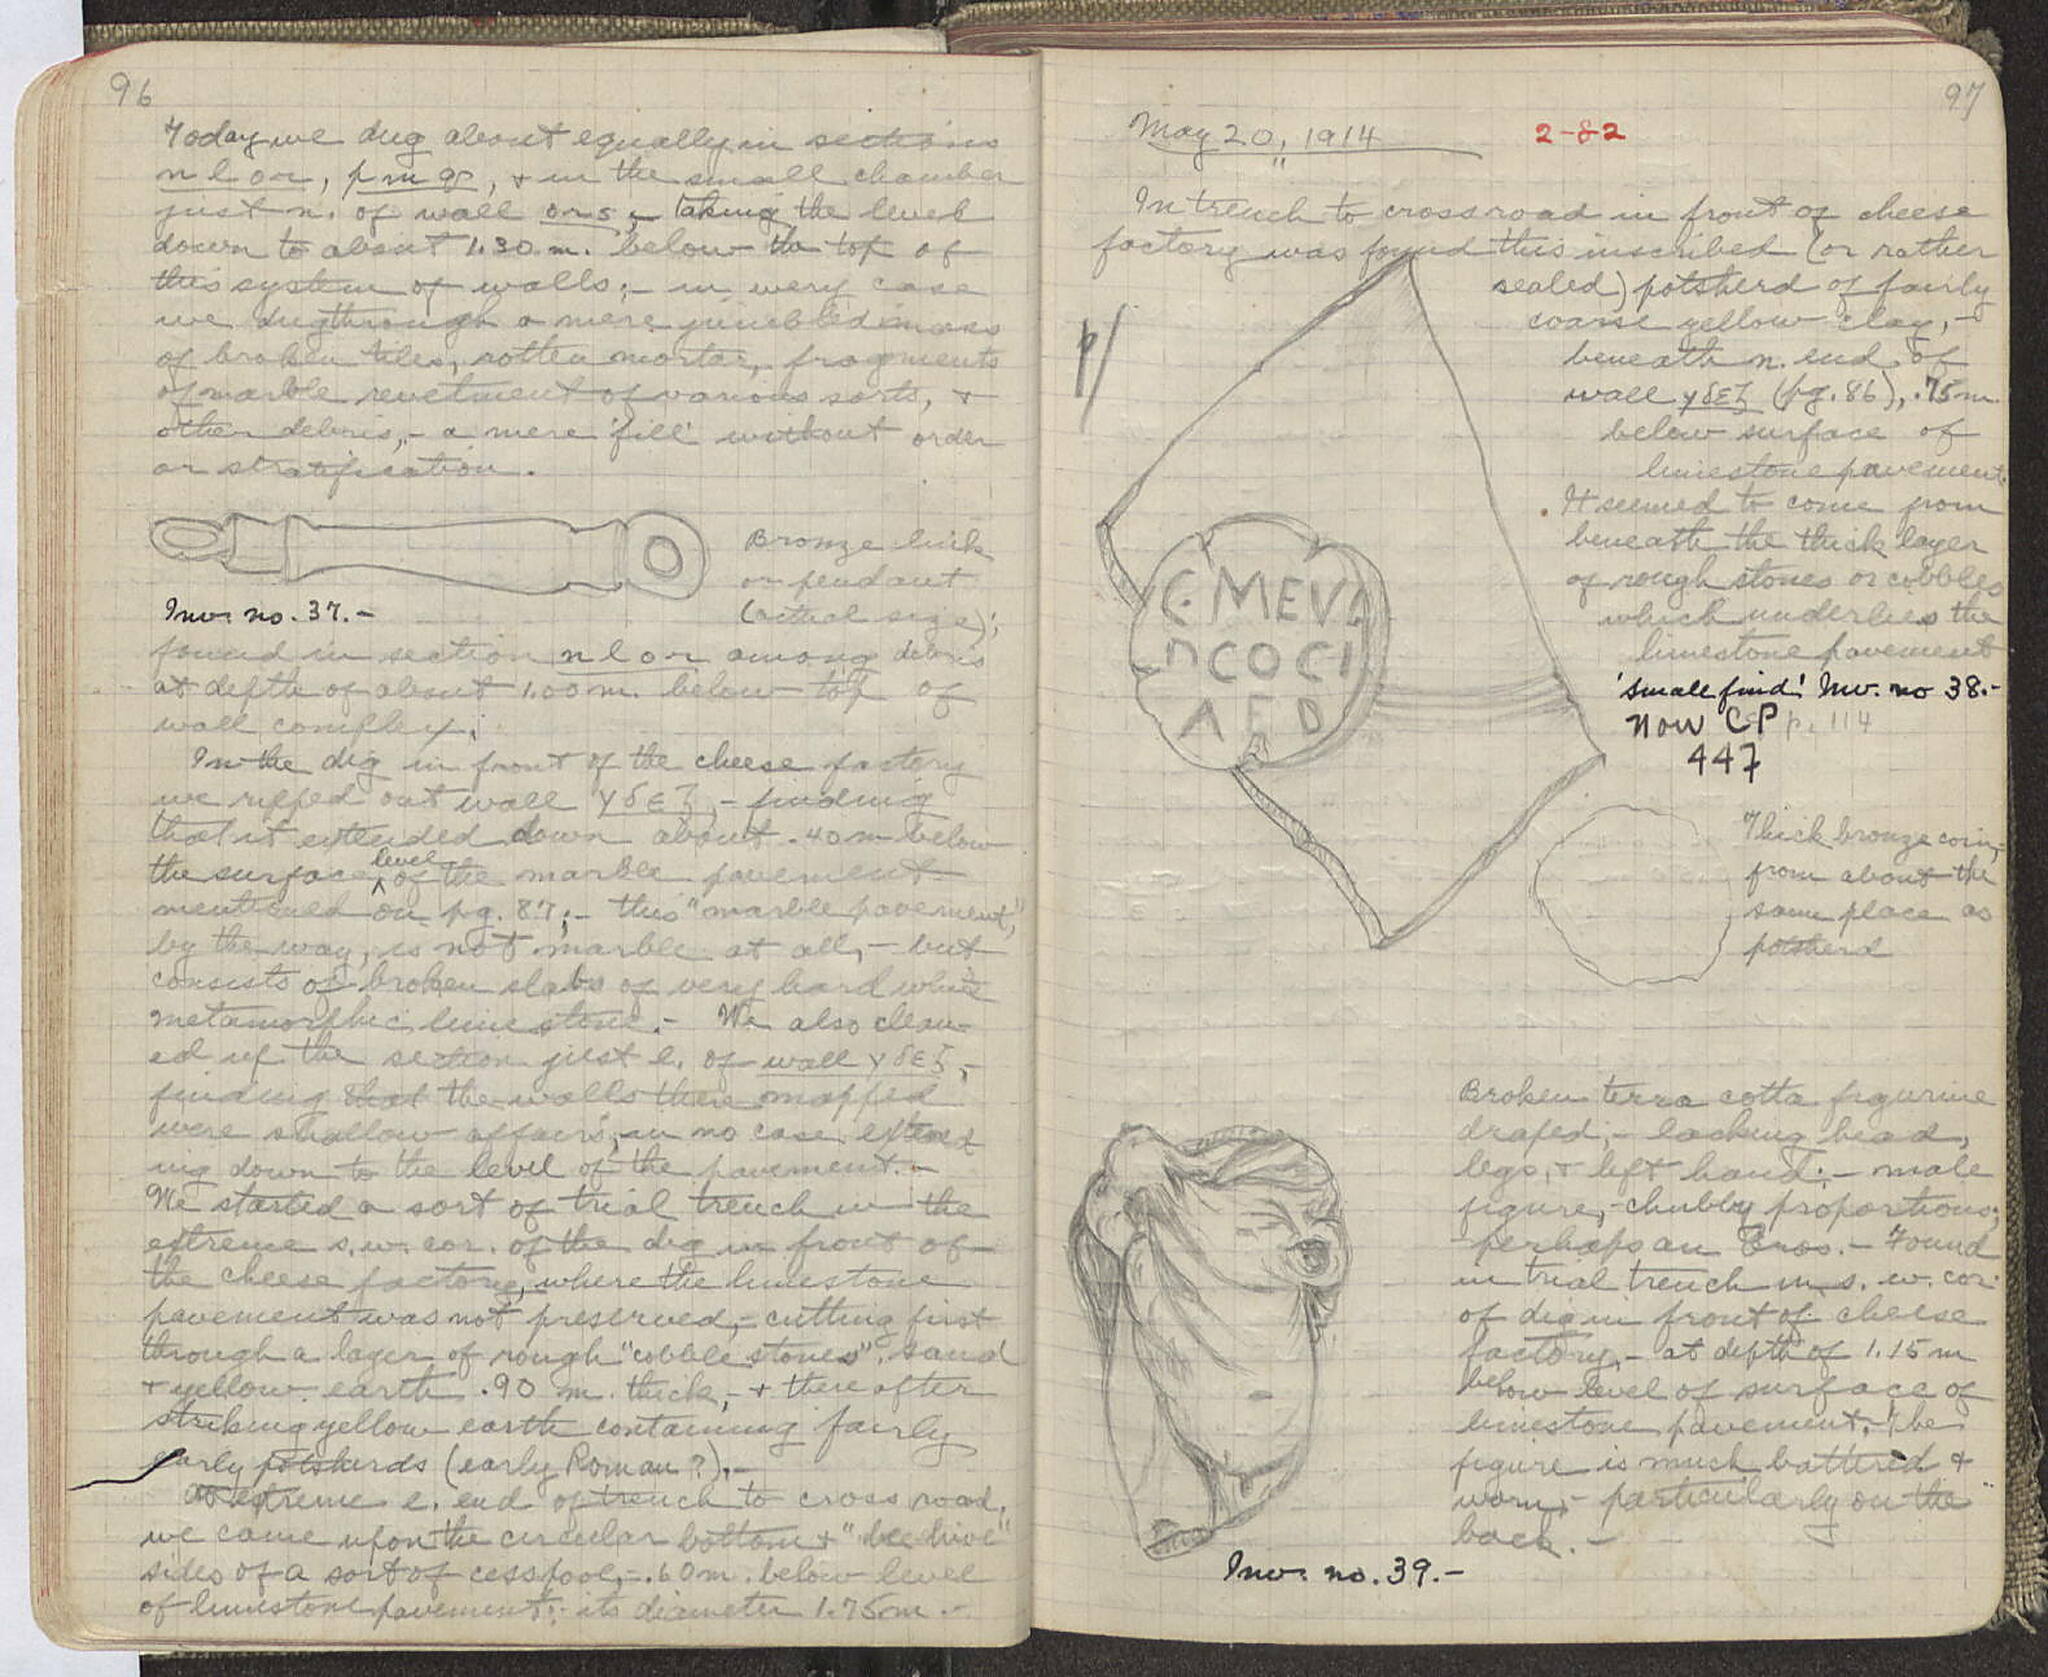 96
Today we dug about equally in sections
n l o r, p m q, + in the small chamber
just n. of wall o r s, – taking the level
down to about 1.30 m. below the top of
this system of walls; – in every case
we dug through a mere jumbled mass
of broken tiles, rotten mortar, fragments
of marble revetment of various sorts, +
other debris, – a mere 'fill' without order
or stratification.
Bronze link
or pendant
(actual size);
Inv. no. 37. –
found in section n l o r among debris
at depth of about 1.00 m. below top of
wall complex.
In the dig in front of the cheese factory
we ripped out wall γδεζ, – finding
that it extended down about .40 m below
the surface level of the marble pavement
mentioned on pg. 87; – this "marble pavement",
by the way, is not marble at all, – but
consists of broken slabs of very hard white
metamorphic limestone. – We also clean-
ed up the section just e. of wall γδεζ, –
finding that the walls there mapped
were shallow affairs, – in no case extend
ing down to the level of the pavement. –
We started a sort of trial trench in the
extreme s.w. cor. of the dig in front of
the cheese factory, where the limestone
pavement was not preserved, – cutting first
through a layer of rough "cobble stones", sand
+ yellow earth .90 m. thick, – + thereafter
striking yellow earth containing fairly
early potsherds (early Roman?). –
At extreme e. end of trench to cross road,
we came upon the circular bottom + "bee hive"
sides of a sort of cesspool, – .60 m. below level
of limestone pavement; – its diameter 1.75 m. –
97
May 20, 1914
2-82
In trench to crossroad in front of cheese
factory was found this inscribed (or rather
sealed) potsherd of fairly
coarse yellow clay, –
beneath n. end of
wall γδεζ (pg. 86), .75 m.
below surface of
limestone pavement.
It seemed to come from
beneath the thick layer
of rough stones or cobbles
which underlies the
limestone pavement
'small find' Inv. no 38. –
Now CP p. 114
447
p/
C. MEVA
NCOCI
A F D
Thick bronze coin, –
from about the
same place as
potsherd
Broken terra cotta figurine
draped, – lacking head,
legs, + left hand; – male
figure, – chubby proportions;
– perhaps an Eros. – Found
in trial trench in s. w. cor.
of dig in front of cheese
factory, – at depth of 1.15 m
below level of surface of
limestone pavement. The
figure is much battered +
worn, – particularly on the
back. –
Inv. no. 39. –